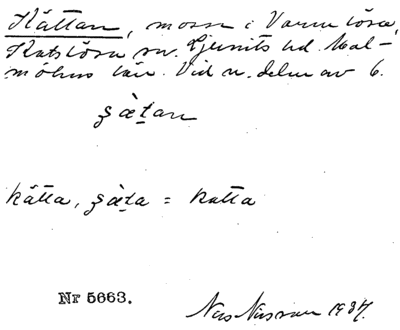 Kättan, mosse i Varmlösa,
Katslösa sn. Ljunits hd. Mal-
möhus län. Vid n. delen av 6.
ʂæ̀tan
kätta, ʂæ̀ta = katta
Nr 5663.
Nils Nilsson 1937.